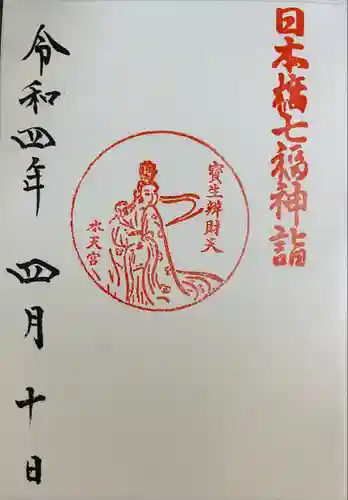 日本橋七福神詣
寳生辨財天
水天宮
令和四年 四月 十日